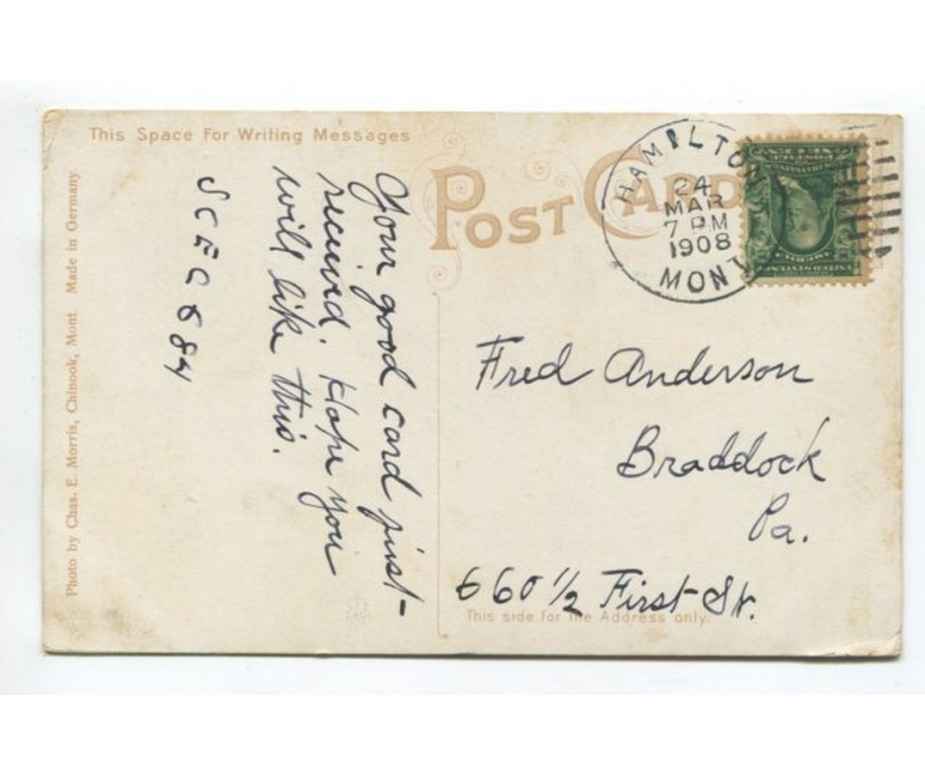 This Space For Writing Messages
POST CARD
HAMILTON
24
MAR
7 PM
1908
MONT
Your good card just
received. Hope you
will like this.
Fred Anderson
Braddock
Pa.
660 1/2 First St.
This side for the Address only.
Photo by Chas. E. Morris, Chinook, Mont. Made in Germany